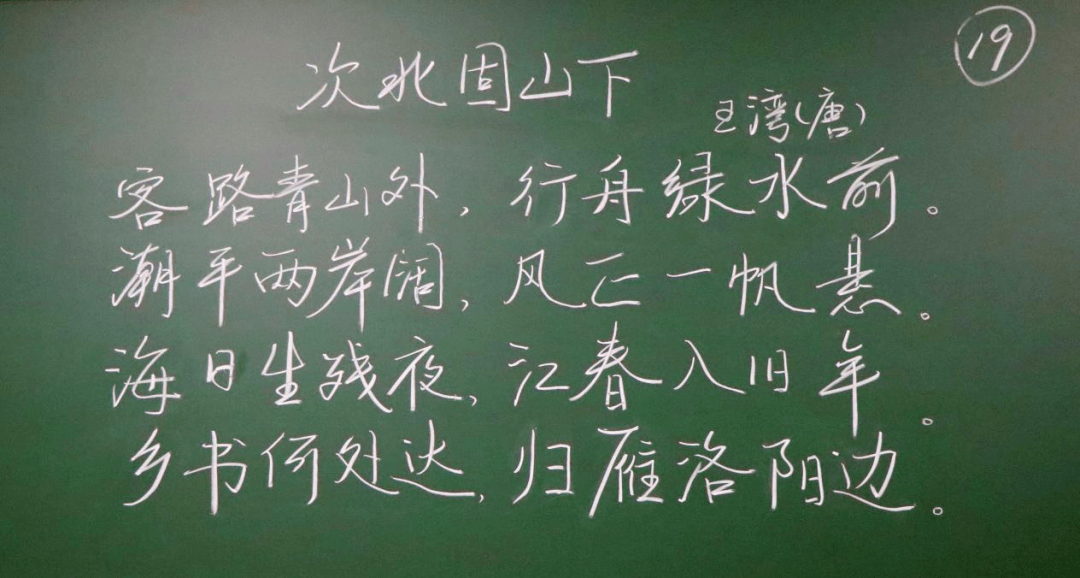 ⑲
次北固山下
王湾(唐)
客路青山外，行舟绿水前。
潮平两岸阔，风正一帆悬。
海日生残夜，江春入旧年。
乡书何处达，归雁洛阳边。